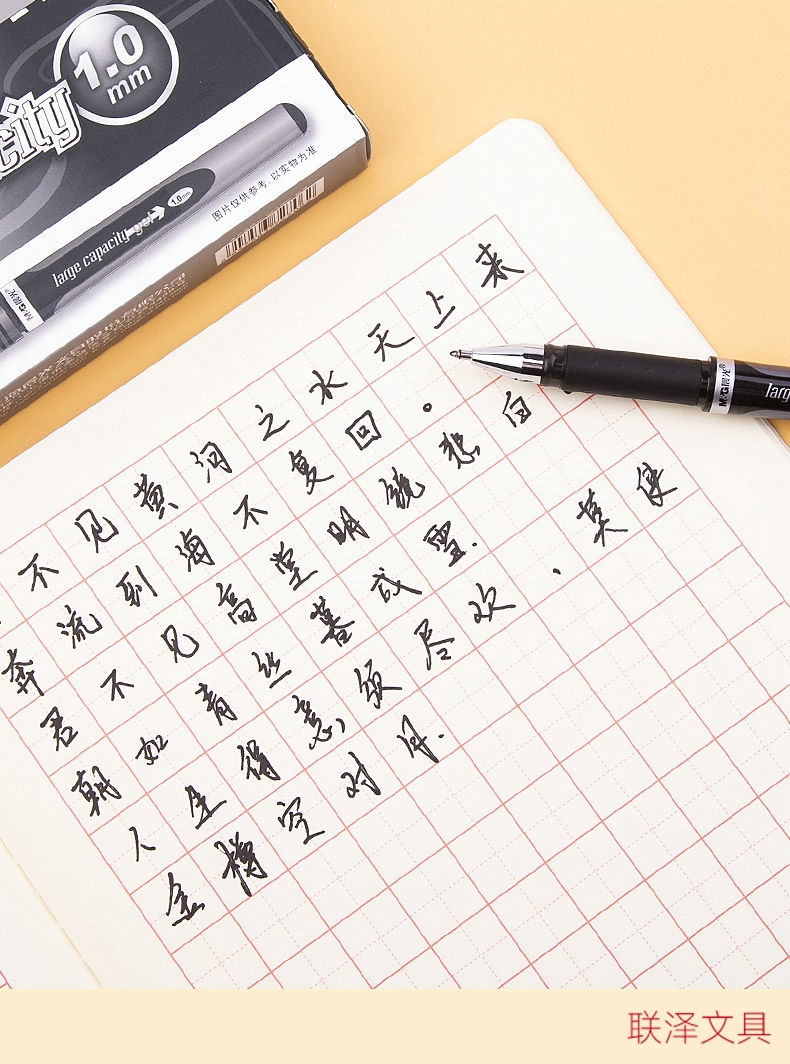 1.0
mm
city
large capacity gel
1.0mm
M&G晨光
图片仅供参考,以实物为准
不见黄河之水天上来
奔流到海不复回。
君不见高堂明镜悲白
朝如青丝暮成雪.
人生得意须尽欢,莫使
金樽空对月.
M&G晨光
larg
联泽文具